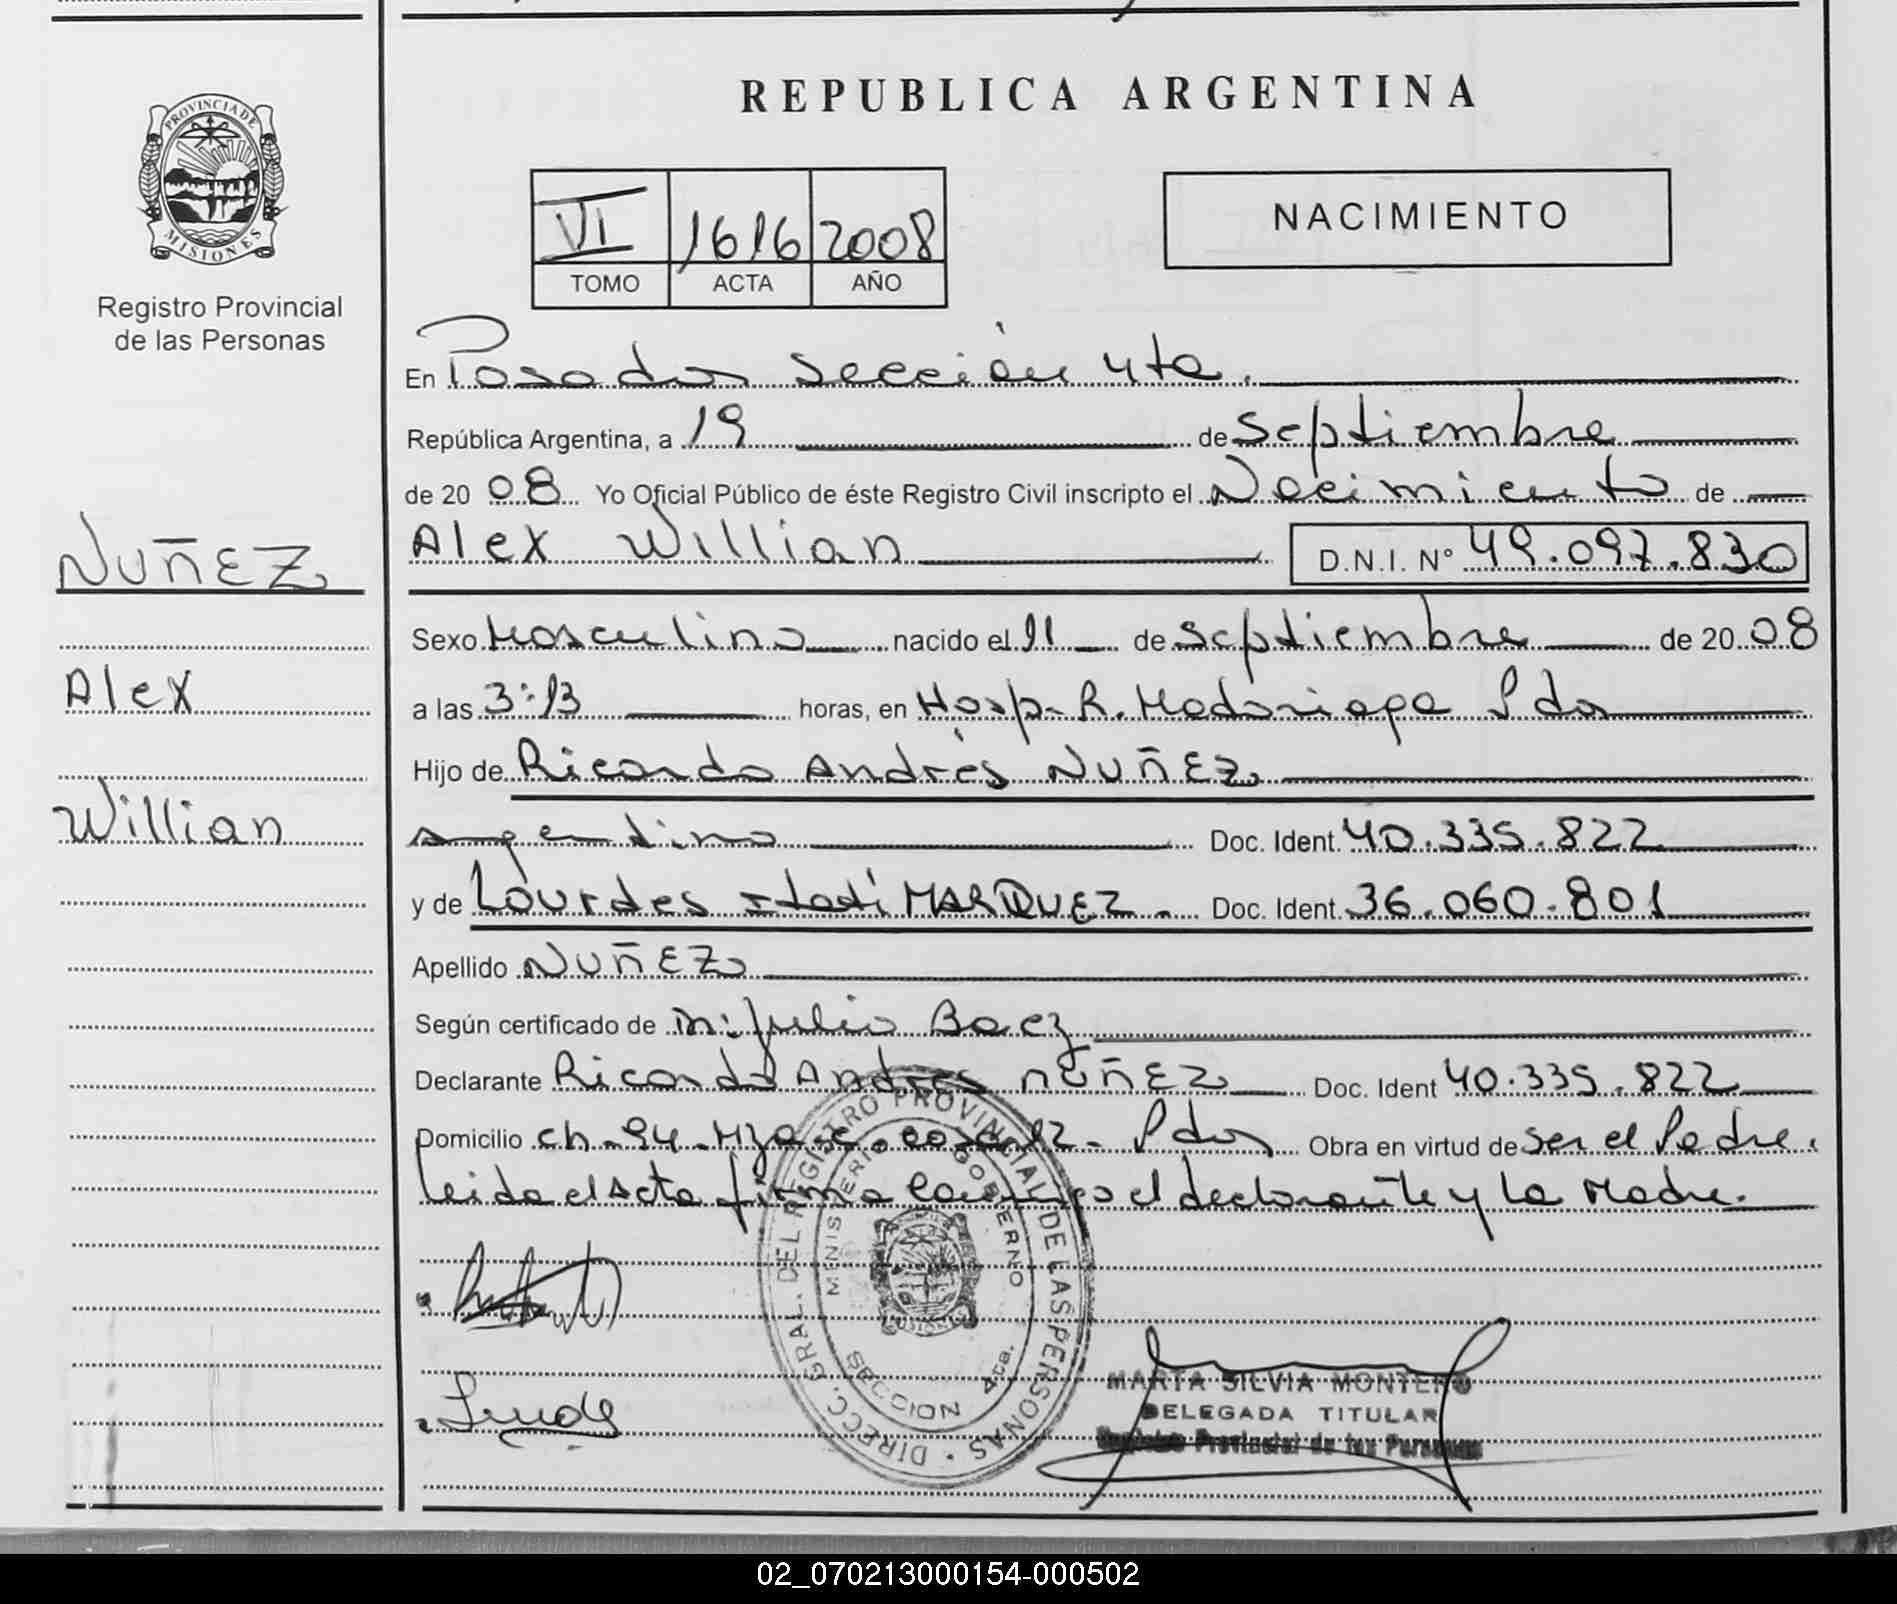 REPUBLICA ARGENTINA
PROVINCIA DE MISIONES
Registro Provincial
de las Personas
VI 1616 2008
TOMO ACTA AÑO
NACIMIENTO
En Posadas Sección 4ta.
República Argentina, a 19 de Septiembre
de 20 08 Yo Oficial Público de éste Registro Civil inscripto el Nacimiento de
Alex Willian D.N.I. N° 49.097.830
NUÑEZ
Alex
Willian
Sexo Masculino nacido el 11 de Septiembre de 20 08
a las 3:13 horas, en Hosp. R. Madariaga Pdas
Hijo de Ricardo Andrés NUÑEZ
argentino Doc. Ident. 40.335.822
y de Lourdes Itatí MARQUEZ. Doc. Ident. 36.060.801
Apellido NUÑEZ
Según certificado de Julio Baez
Declarante Ricardo Andrés NUÑEZ Doc. Ident 40.335.822
Domicilio ch. 94. Mza Pdas Obra en virtud de Ser el Padre.
leida el acta firma conmigo el declarante y la Madre.
DIRECC. GRAL. DEL REGISTRO PROVINCIAL DE LAS PERSONAS
MINISTERIO GOBIERNO
MISIONES
SECCION 4ta.
MARTA SILVIA MONTERO
DELEGADA TITULAR
Registro Provincial de las Personas
02_070213000154-000502